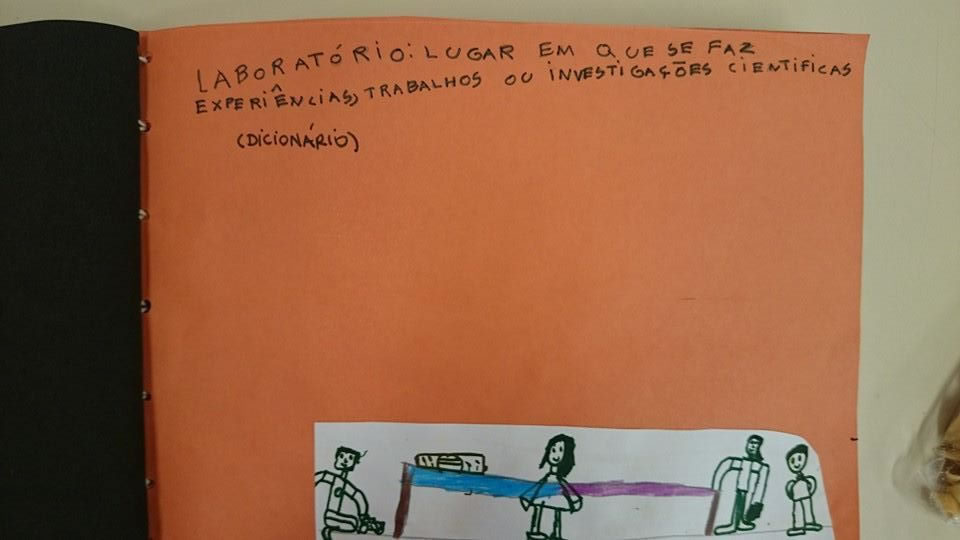 LABORATÓRIO: LUGAR EM QUE SE FAZ
EXPERIÊNCIAS, TRABALHOS OU INVESTIGAÇÕES CIENTIFICAS
(DICIONÁRIO)